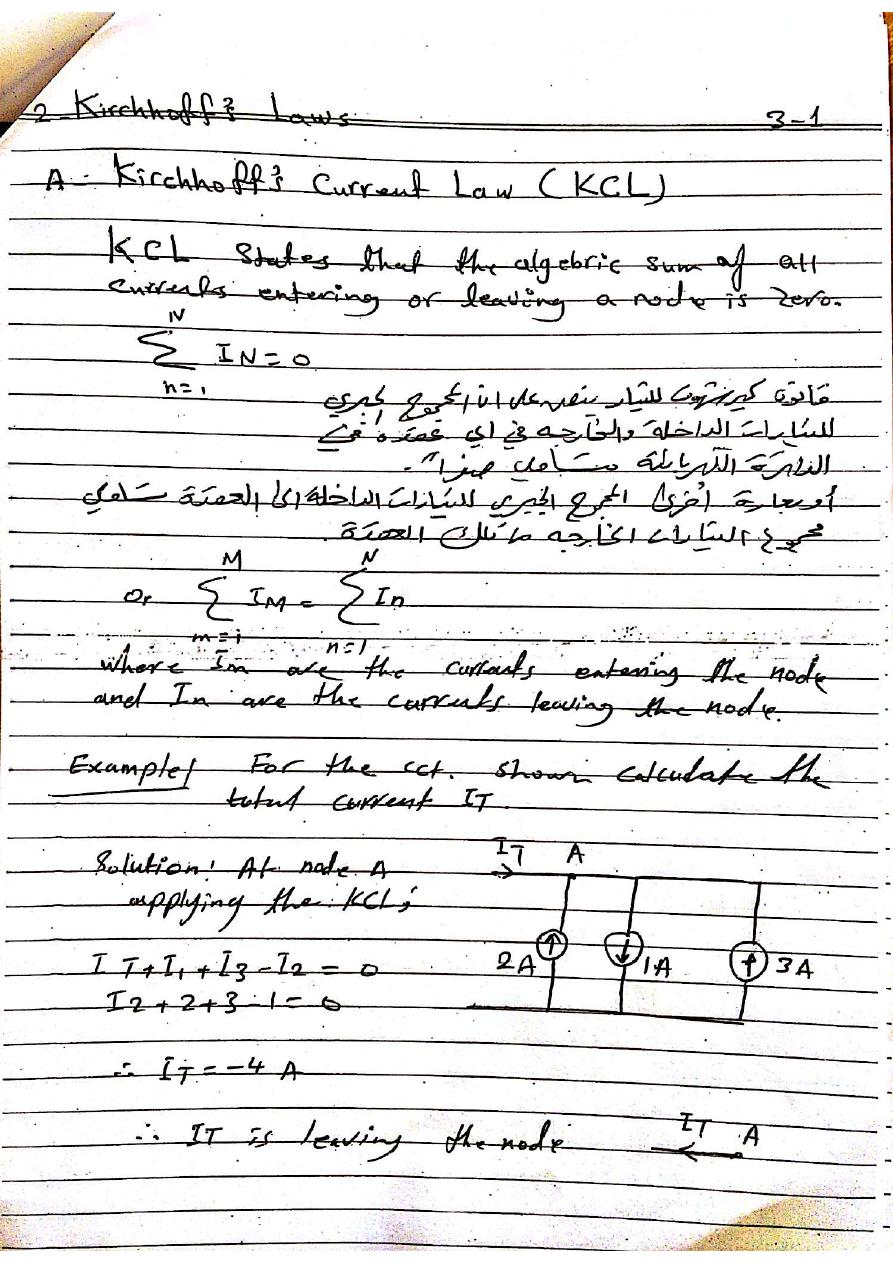 2 Kirchhoff's Laws 3-1
A- Kirchhoff's Current Law (KCL)
KCL States that the algebric sum of all
currents entering or leaving a node is Zero.
N
∑ IN = 0
n=1
قانون كيرشهوف للتيار ينص على ان المجموع الجبري
للتيارات الداخلة والخارجه في اي عقدة في
الدائرة الكهربائية مساوي صفراً.
أو بعبارة أخرى المجموع الجبري للتيارات الداخلة الى العقدة تساوي
مجموع التيارات الخارجه من تلك العقدة.
M N
Or ∑ IM = ∑ In
m=1 n=1
where Im are the currents entering the node
and In are the currents leaving the node.
Example/ For the cct. shown calculate the
total current IT.
Solution: At node A
applying the KCL;
IT+I1+I3-I2=0
I2+2+3-1=0
∴ IT=-4 A
∴ IT is leaving the node
IT A
2A 1A 3A
IT A